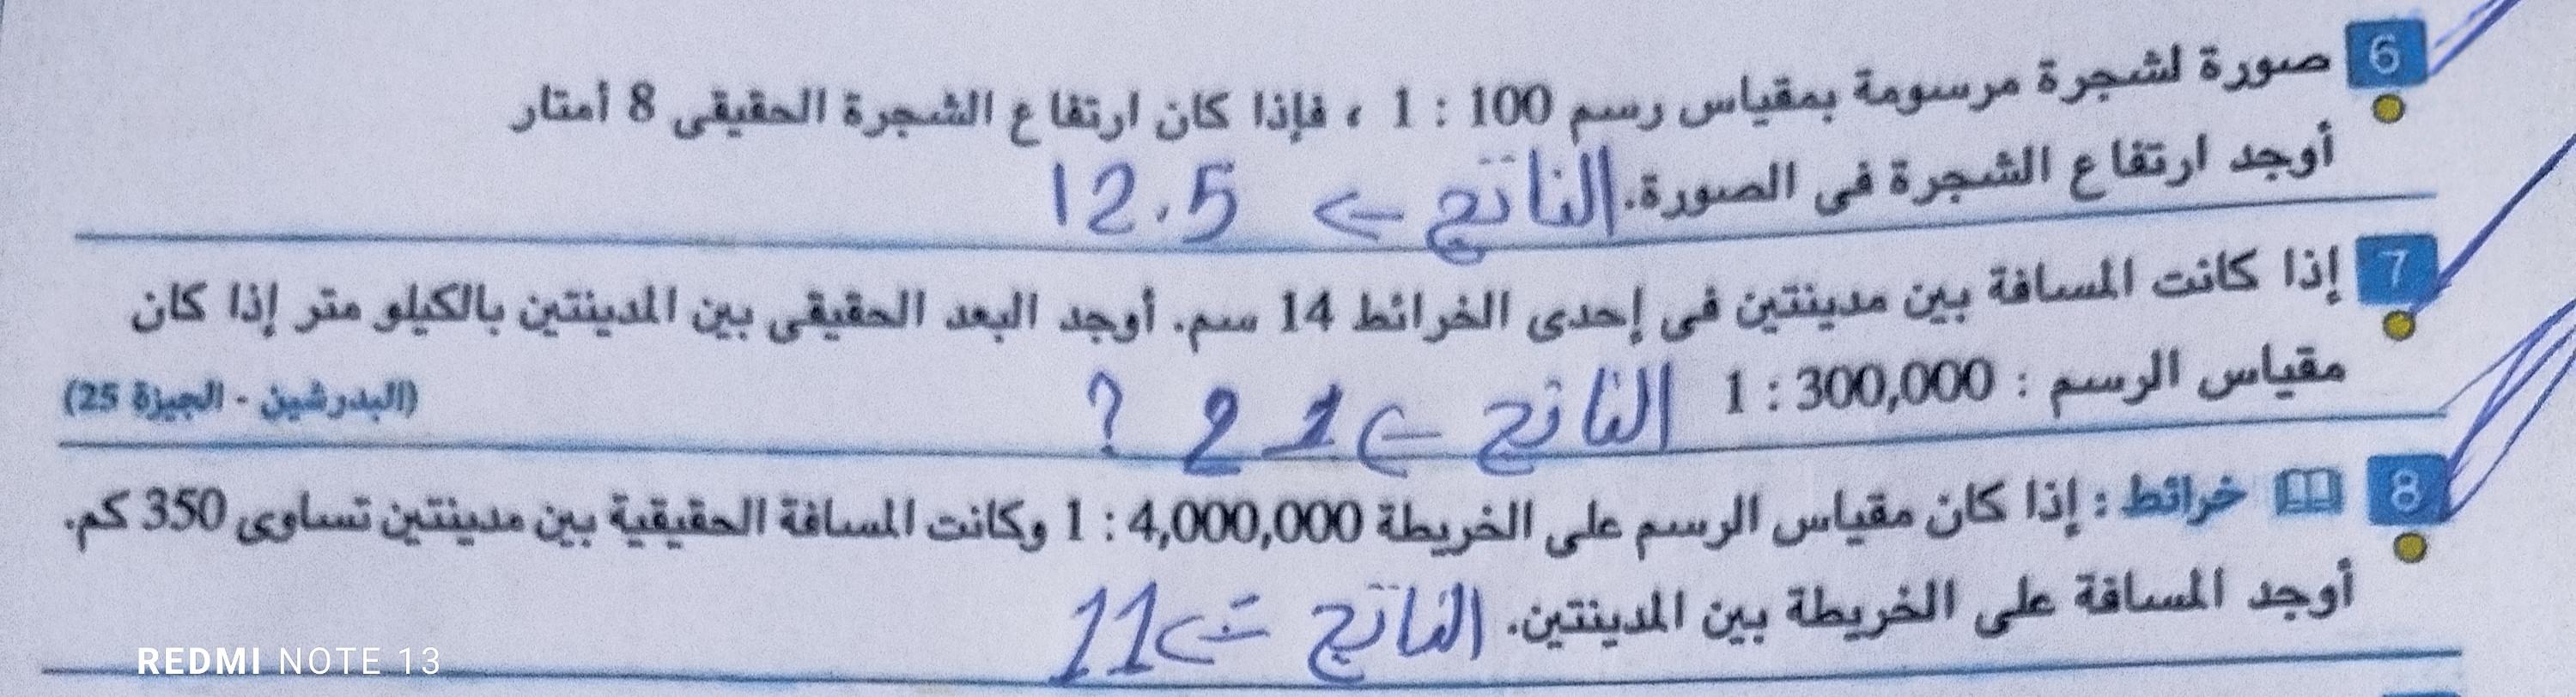 6 صورة لشجرة مرسومة بمقياس رسم 100 : 1 ، فإذا كان ارتفاع الشجرة الحقيقى 8 أمتار
أوجد ارتفاع الشجرة فى الصورة. الناتج ← 12.5
7 إذا كانت المسافة بين مدينتين فى إحدى الخرائط 14 سم. أوجد البعد الحقيقى بين المدينتين بالكيلو متر إذا كان
مقياس الرسم : 300,000 : 1 الناتج ← 21 ?
(البدرشين - الجيزة 25)
8 خرائط : إذا كان مقياس الرسم على الخريطة 4,000,000 : 1 وكانت المسافة الحقيقية بين مدينتين تساوى 350 كم.
أوجد المسافة على الخريطة بين المدينتين. الناتج ← 11
REDMI NOTE 13